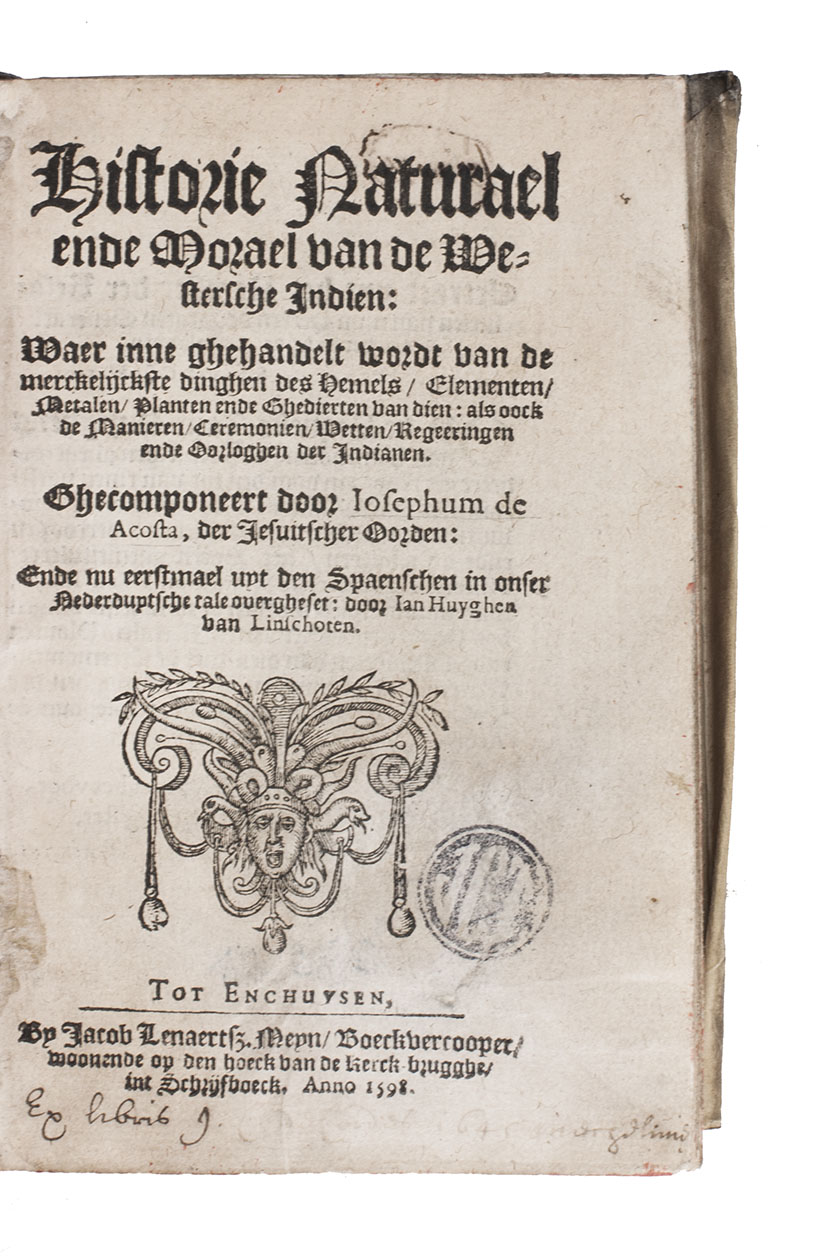 Historie Naturael
ende Morael van de We-
stersche Indien:
Waer inne ghehandelt wordt van de
merckelijckste dinghen des Hemels / Elementen /
Metalen / Planten ende Ghedierten van dien : als oock
de Manieren / Ceremonien / Wetten / Regeeringen
ende Oorloghen der Indianen.
Ghecomponeert door Iosephum de
Acosta, der Jesuitscher Oorden:
Ende nu eerstmael uyt den Spaenschen in onser
Nederduytsche tale overgheset : door Ian Huyghen
van Linschoten.
TOT ENCHUYSEN,
By Jacob Lenaertsz. Meyn / Boeckvercooper /
woonende op den hoeck van de Kerck-brugghe /
int Schrijfboeck. Anno 1598.
Ex libris J.